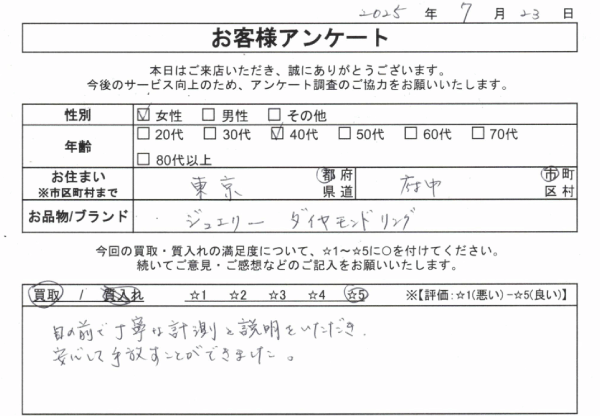 2025 年 7 月 23 日
お客様アンケート
本日はご来店いただき、誠にありがとうございます。
今後のサービス向上のため、アンケート調査のご協力をお願いいたします。
性別 ☑ 女性 □ 男性 □ その他
年齢 □ 20代 □ 30代 ☑ 40代 □ 50代 □ 60代 □ 70代
□ 80代以上
お住まい ※市区町村まで 東京 都府県道 府中 市町区村
お品物/ブランド ジュエリー ダイヤモンドリング
今回の買取・質入れの満足度について、☆1～☆5に○を付けてください。
続いてご意見・ご感想などのご記入をお願いいたします。
買取 / 質入れ ☆1 ☆2 ☆3 ☆4 ☆5 ※【評価:☆1(悪い)−☆5(良い)】
目の前で丁寧な計測と説明をいただき、
安心して手放すことができました。